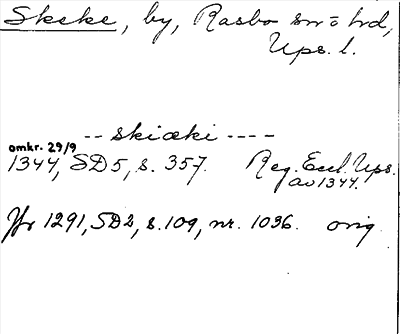 Skeke, by, Rasbo sn o hrd,
Ups. l.
-- skiæki ----
omkr. 29/9
1344, SD5, s. 357. Reg. Eccl. Ups.
av 1344.
Jfr 1291, SD2, s. 109, nr. 1036. orig.